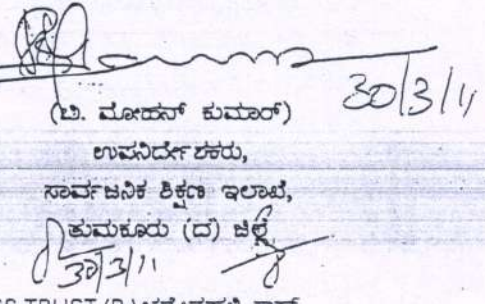 30/3/11
(ಬಿ. ಮೋಹನ್ ಕುಮಾರ್)
ಉಪನಿರ್ದೇಶಕರು,
ಸಾರ್ವಜನಿಕ ಶಿಕ್ಷಣ ಇಲಾಖೆ,
ತುಮಕೂರು (ದ) ಜಿಲ್ಲೆ
30/3/11
TRUST (R.)